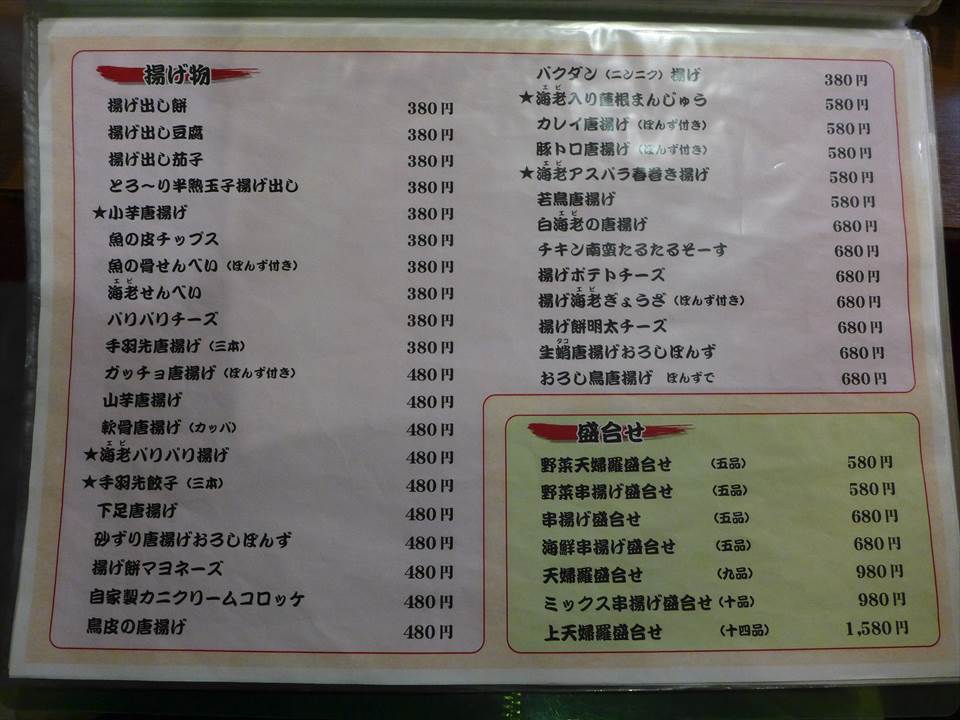 揚げ物
揚げ出し餅 380円
揚げ出し豆腐 380円
揚げ出し茄子 380円
とろ～り半熟玉子揚げ出し 380円
★小芋唐揚げ 380円
魚の皮チップス 380円
魚の骨せんべい（ぽんず付き） 380円
エビ
海老せんべい 380円
バリバリチーズ 380円
手羽先唐揚げ（三本） 380円
ガッチョ唐揚げ（ぽんず付き） 480円
山芋唐揚げ 480円
軟骨唐揚げ（カッパ） 480円
エビ
★海老バリバリ揚げ 480円
★手羽先餃子（三本） 480円
下足唐揚げ 480円
砂ずり唐揚げおろしぽんず 480円
揚げ餅マヨネーズ 480円
自家製カニクリームコロッケ 480円
鳥皮の唐揚げ 480円
バクダン（ニンニク）揚げ 380円
エビ
★海老入り蓮根まんじゅう 580円
カレイ唐揚げ（ぽんず付き） 580円
豚トロ唐揚げ（ぽんず付き） 580円
エビ
★海老アスパラ春巻き揚げ 580円
若鳥唐揚げ 580円
エビ
白海老の唐揚げ 680円
チキン南蛮たるたるそーす 680円
揚げポテトチーズ 680円
エビ
揚げ海老ぎょうざ（ぽんず付き） 680円
揚げ餅明太チーズ 680円
タコ
生蛸唐揚げおろしぽんず 680円
おろし鳥唐揚げ ぽんずで 680円
盛合せ
野菜天婦羅盛合せ （五品） 580円
野菜串揚げ盛合せ （五品） 580円
串揚げ盛合せ （五品） 680円
海鮮串揚げ盛合せ （五品） 680円
天婦羅盛合せ （九品） 980円
ミックス串揚げ盛合せ（十品） 980円
上天婦羅盛合せ （十四品） 1,580円